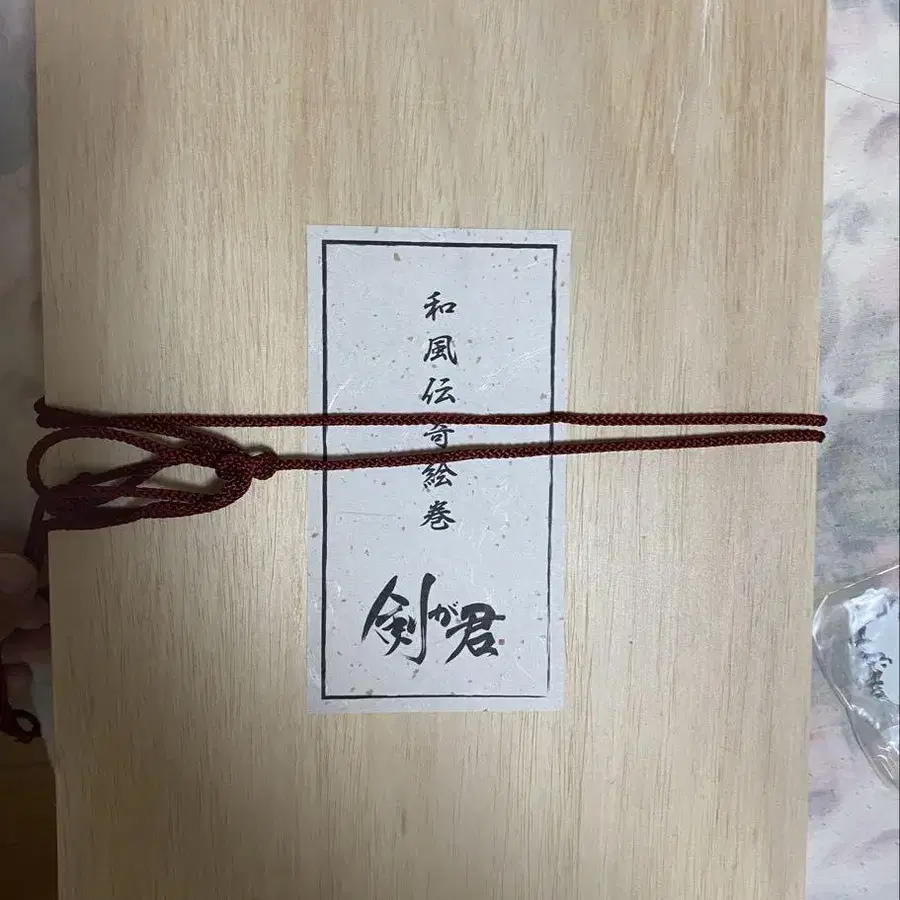 和風伝奇絵巻
剣が君